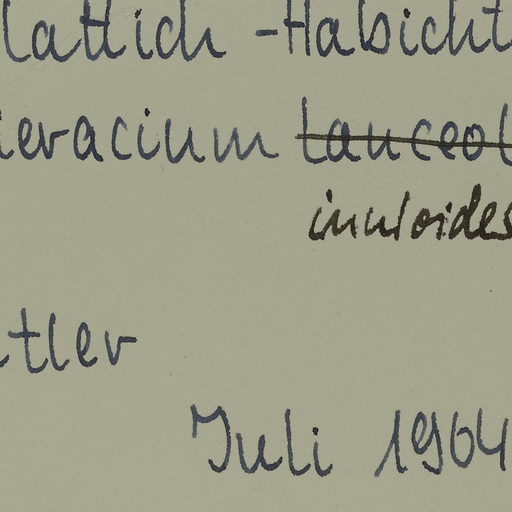 lattich-Habicht
ieracium lanceol
inuloides
tler
Juli 1964